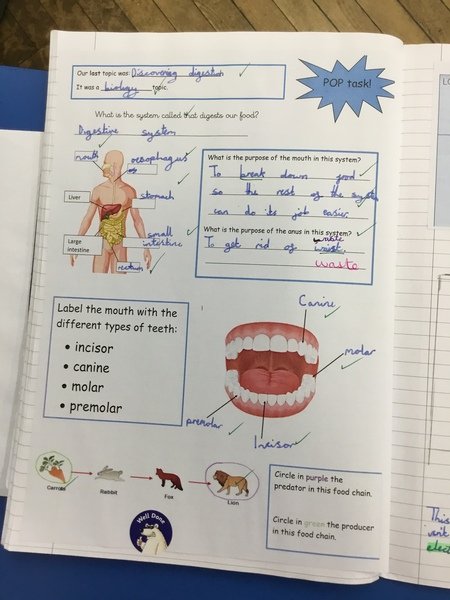 Our last topic was: Discovering digestion
It was a biology topic.
POP task!
What is the system called that digests our food?
Digestive system
mouth
oesophagus
Liver
stomach
Large intestine
small intestine
rectum
What is the purpose of the mouth in this system?
To break down food
so the rest of the system
can do its job easier.
What is the purpose of the anus in this system?
To get rid of
waste
Label the mouth with the
different types of teeth:
• incisor
• canine
• molar
• premolar
Canine
molar
premolar
Incisor
Carrots
Rabbit
Fox
Lion
Well Done
Circle in purple the
predator in this food chain.
Circle in green the producer
in this food chain.
This